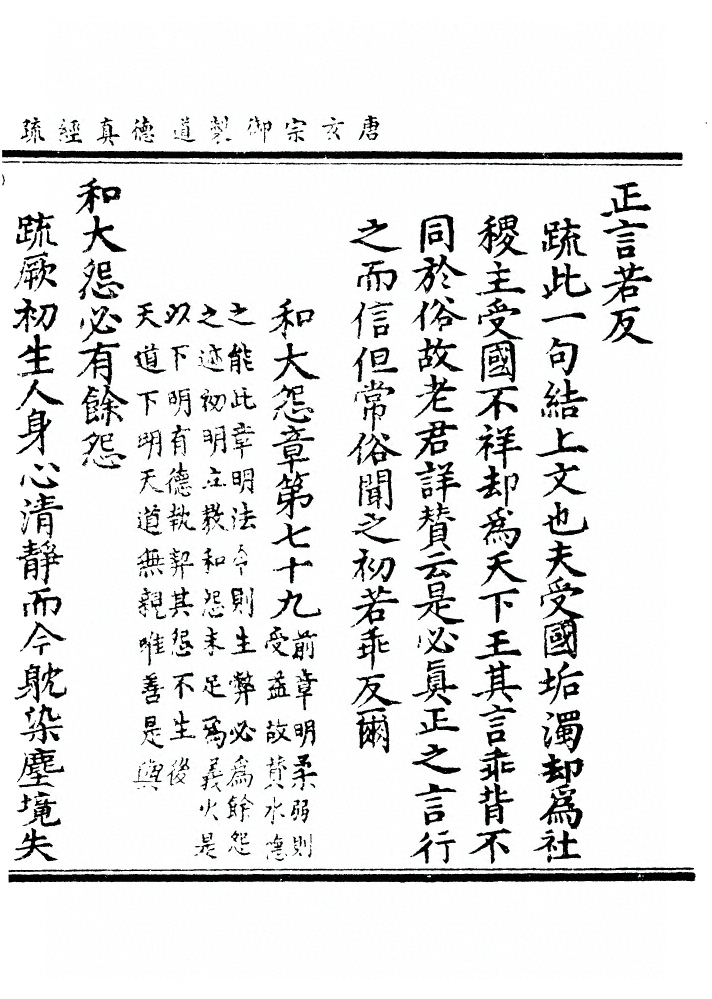 唐玄宗御製道德真經疏
正言若反
疏此一句結上文也夫受國垢濁却爲社
稷主受國不祥却爲天下王其言乖背不
同於俗故老君詳賛云是必眞正之言行
之而信但常俗聞之初若乖反爾
和大怨章第七十九
前章明柔弱則
受益故賛水德
之能此章明法令則生弊必爲餘怨
之迹初明立教和怨未足爲義次是
以下明有德執契其怨不生後
天道下明天道無親唯善是與
和大怨必有餘怨
疏厥初生人身心清靜而今躭染塵境失